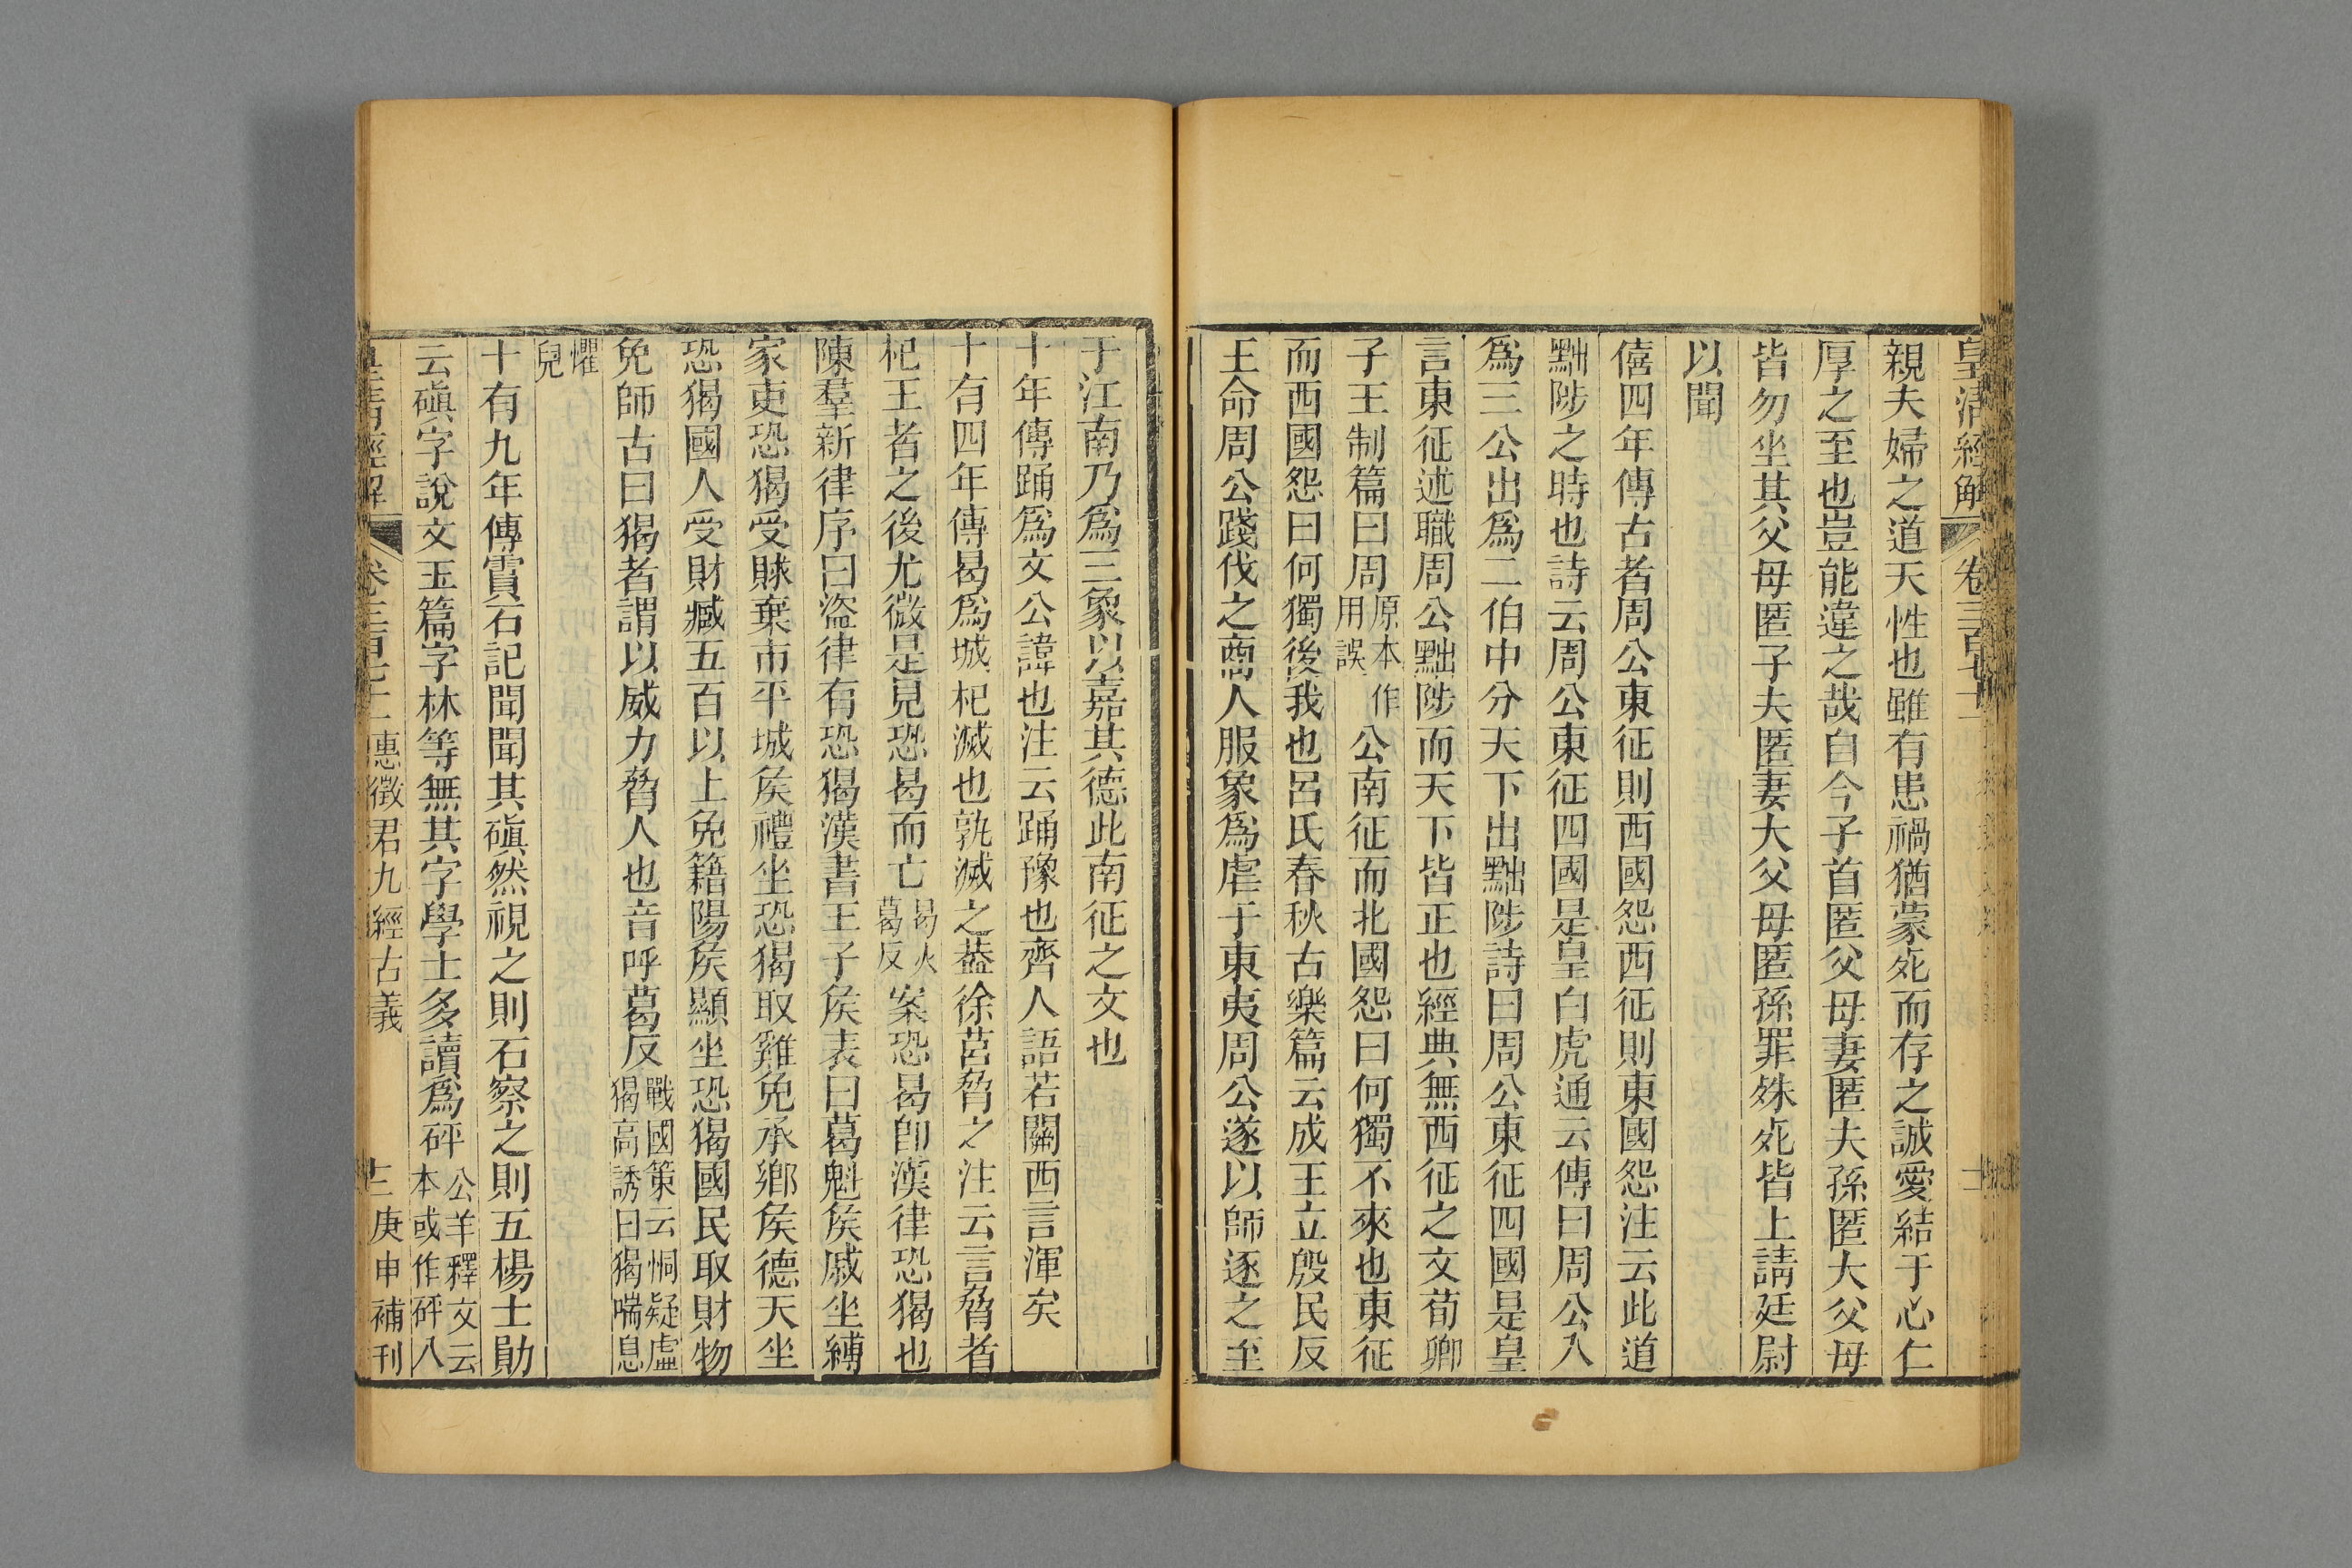 皇清經解 卷三百七十一
親夫婦之道天性也雖有患禍猶蒙死而存之誠愛結于心仁
厚之至也豈能違之哉自今子首匿父母妻匿夫孫匿大父母
皆勿坐其父母匿子夫匿妻大父母匿孫罪殊死皆上請廷尉
以聞
僖四年傳古者周公東征則西國怨西征則東國怨注云此道
黜陟之時也詩云周公東征四國是皇白虎通云傳曰周公入
爲三公出爲二伯中分天下出黜陟詩曰周公東征四國是皇
言東征述職周公黜陟而天下皆正也經典無西征之文荀卿
子王制篇曰周原本作用誤公南征而北國怨曰何獨不來也東征
而西國怨曰何獨後我也呂氏春秋古樂篇云成王立殷民反
王命周公踐伐之商人服象爲虐于東夷周公遂以師逐之至
于江南乃爲三象以嘉其德此南征之文也
十年傳踊爲文公諱也注云踊豫也齊人語若關西言渾矣
十有四年傳曷爲城杞滅也孰滅之葢徐莒脅之注云言脅者
杞王者之後尤微是見恐曷而亡曷火葛反案恐曷卽漢律恐猲也
陳羣新律序曰盜律有恐猲漢書王子侯表曰葛魁侯戚坐縛
家吏恐猲受賕棄市平城侯禮坐恐猲取雞免承鄉侯德天坐
恐猲國人受財臧五百以上免籍陽侯顯坐恐猲國民取財物
免師古曰猲者謂以威力脅人也音呼葛反戰國策云恫疑虛猲高誘曰猲喘息
懼皃
十有九年傳霣石記聞聞其磌然視之則石察之則五楊士勛
云磌字說文玉篇字林等無其字學士多讀爲砰公羊釋文云本或作砰八
皇清經解 卷三百七十一 惠徵君九經古義 十二 庚申補刊